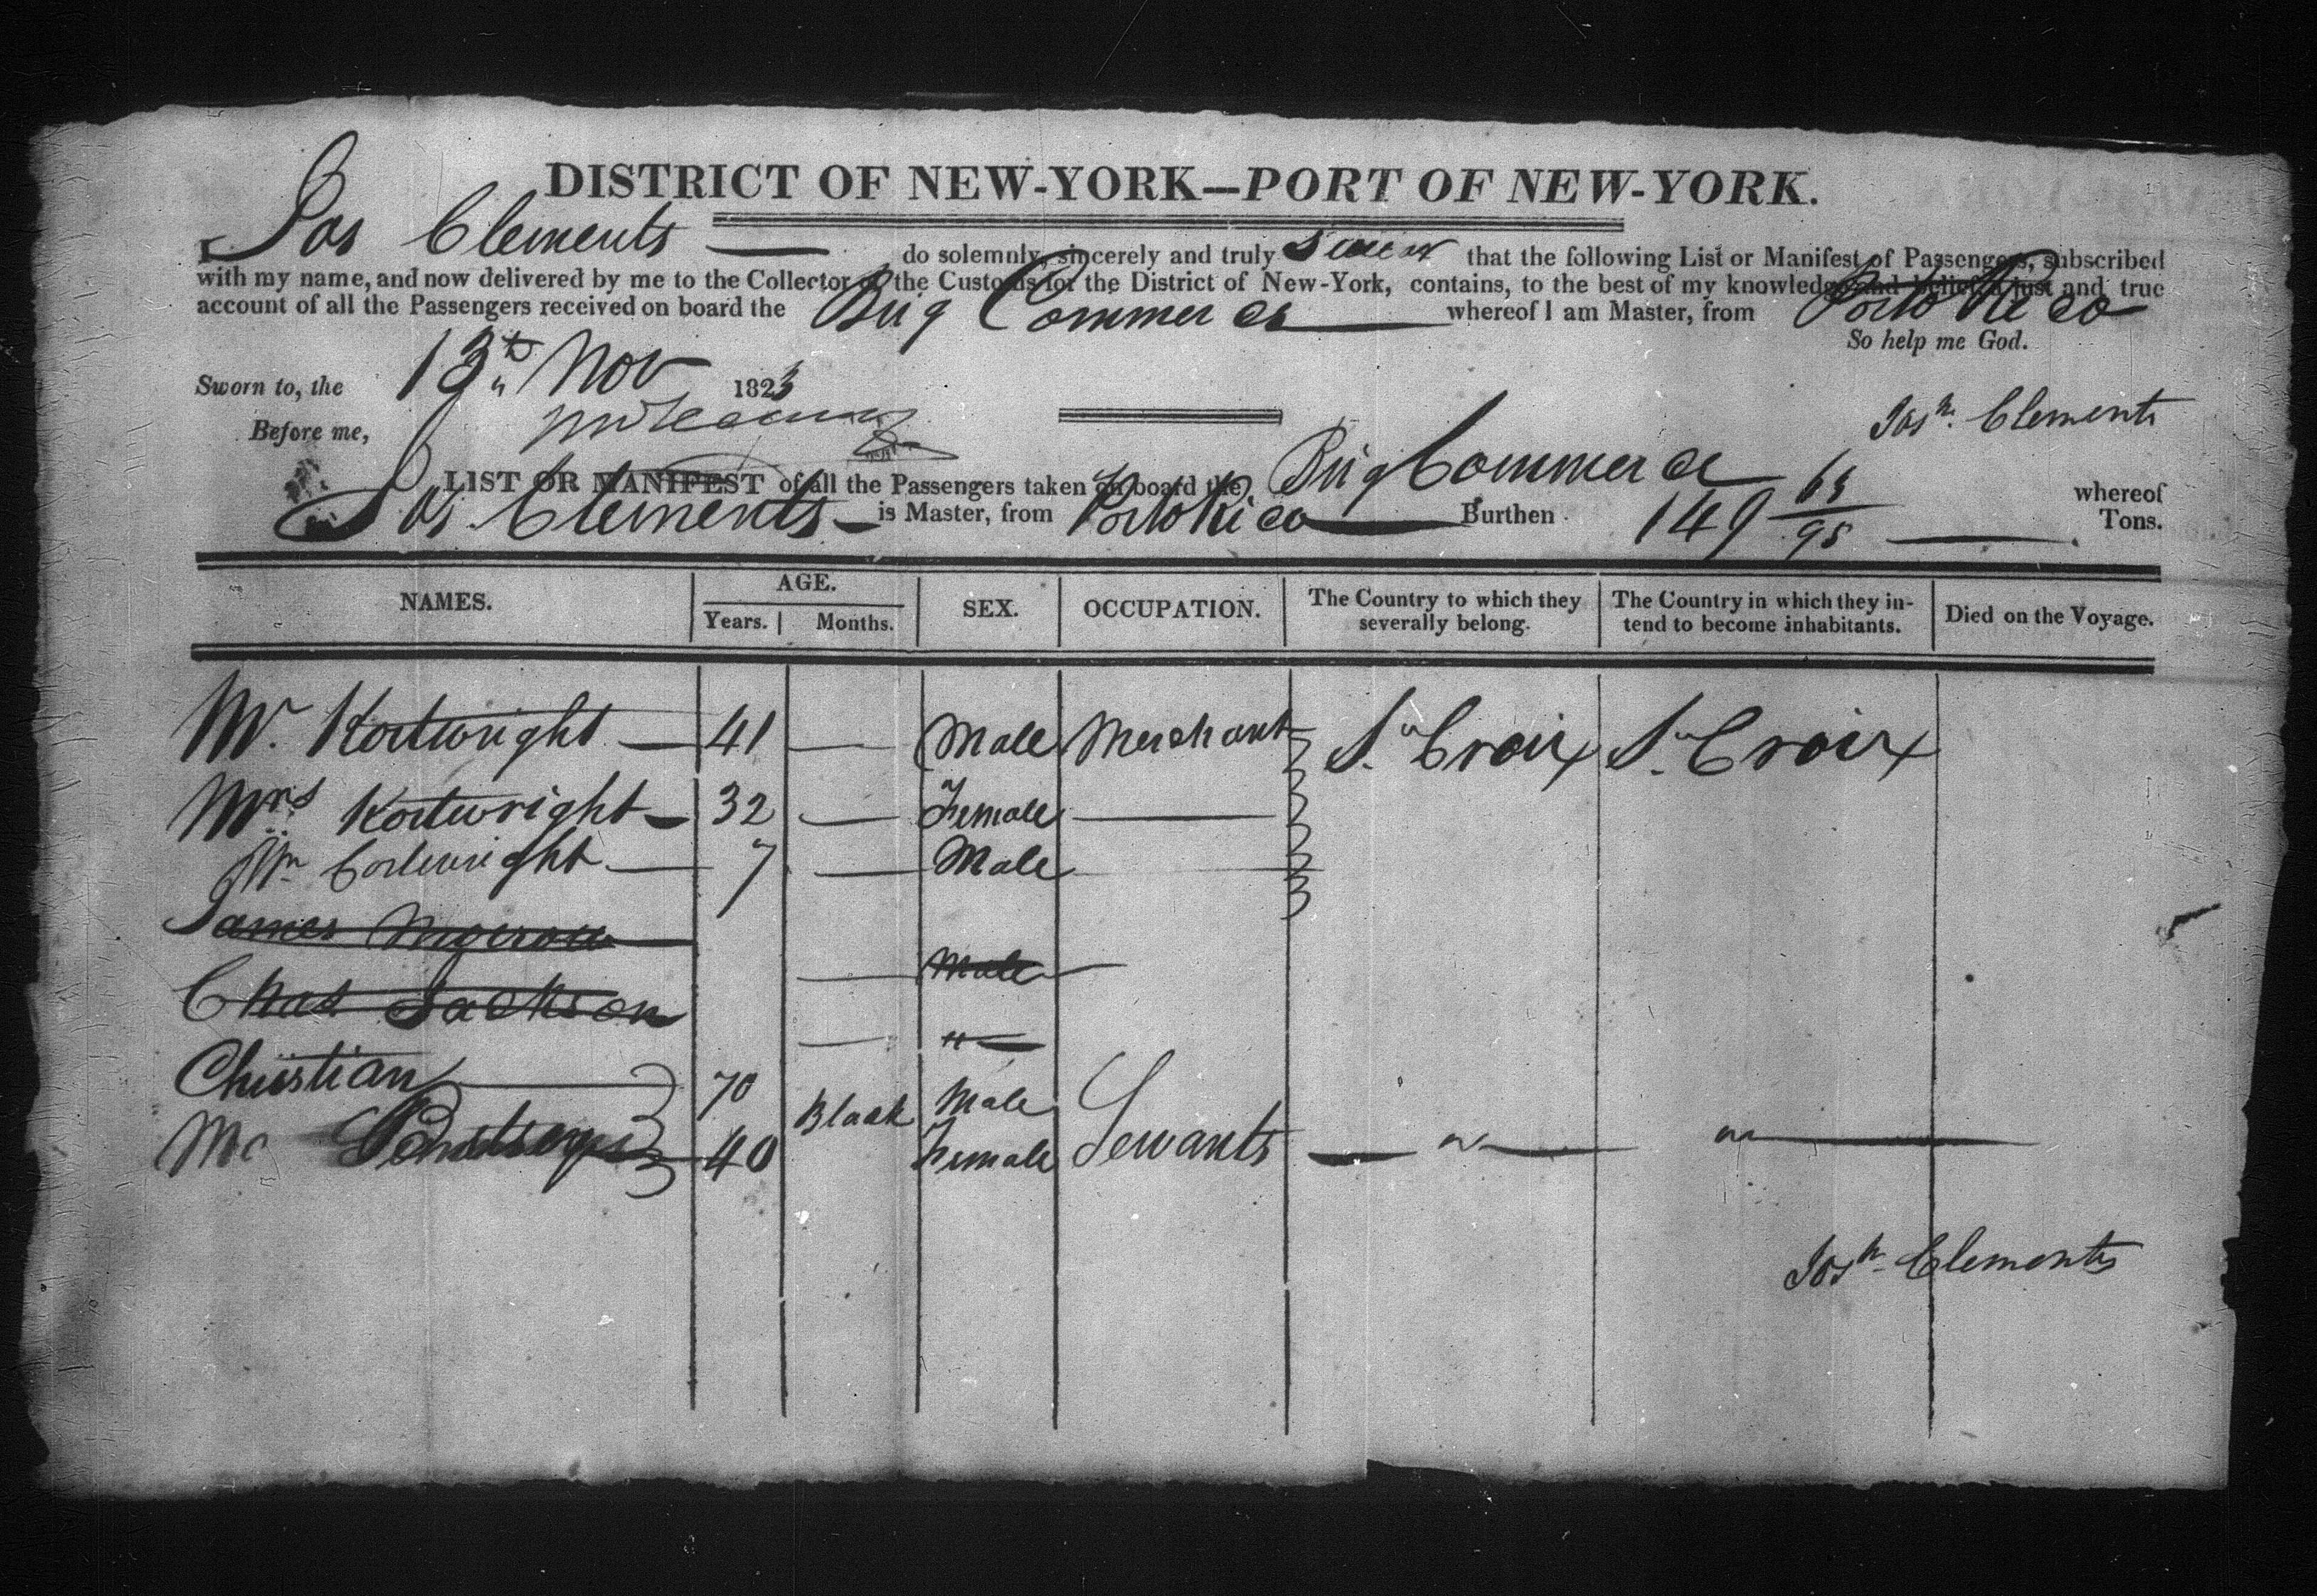 DISTRICT OF NEW-YORK—PORT OF NEW-YORK.
I Jos Clements do solemnly, sincerely and truly swear that the following List or Manifest of Passengers, subscribed
with my name, and now delivered by me to the Collector of the Customs for the District of New-York, contains, to the best of my knowledge and belief, a just and true
account of all the Passengers received on board the Brig Commerce whereof I am Master, from Porto Rico
So help me God.
Sworn to, the 13th Nov 1823
Before me,
Josh. Clements
LIST OR MANIFEST of all the Passengers taken on board the Brig Commerce whereof
Jos Clements is Master, from Porto Rico Burthen 149 63/95 Tons.
NAMES. AGE. SEX. OCCUPATION. The Country to which they severally belong. The Country in which they intend to become inhabitants. Died on the Voyage.
Years. Months.
Mr. Kortwright 41 — Male Merchant St. Croix St. Croix
Mrs Kortwright 32 — Female —
Wm Cortwright 7 — Male
James
— Male —
Chas Jackson
— " —
Christian 70 Black Male Servants
40 Female — " — " —
Josh. Clements